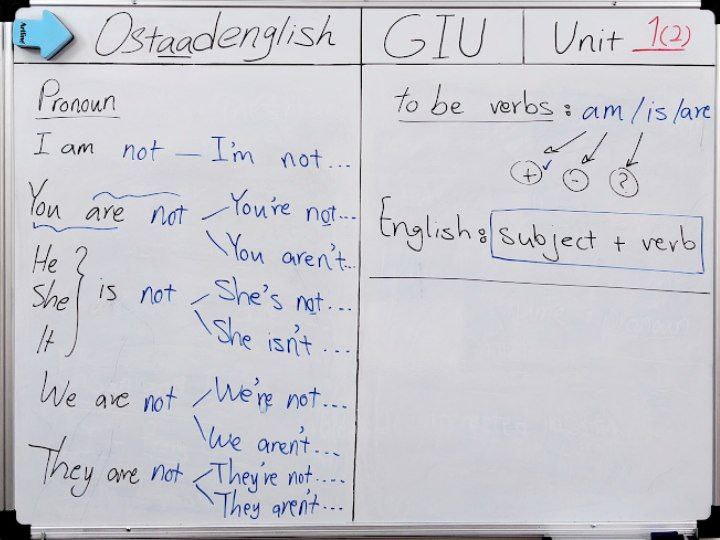 Artline
Ostaadenglish
GIU
Unit 1(2)
Pronoun
I am not – I'm not...
You are not You're not...
You aren't...
He
She is not She's not...
It She isn't ...
We are not We're not...
We aren't...
They are not They're not....
They aren't...
to be verbs : am / is / are
+ - ?
English : subject + verb